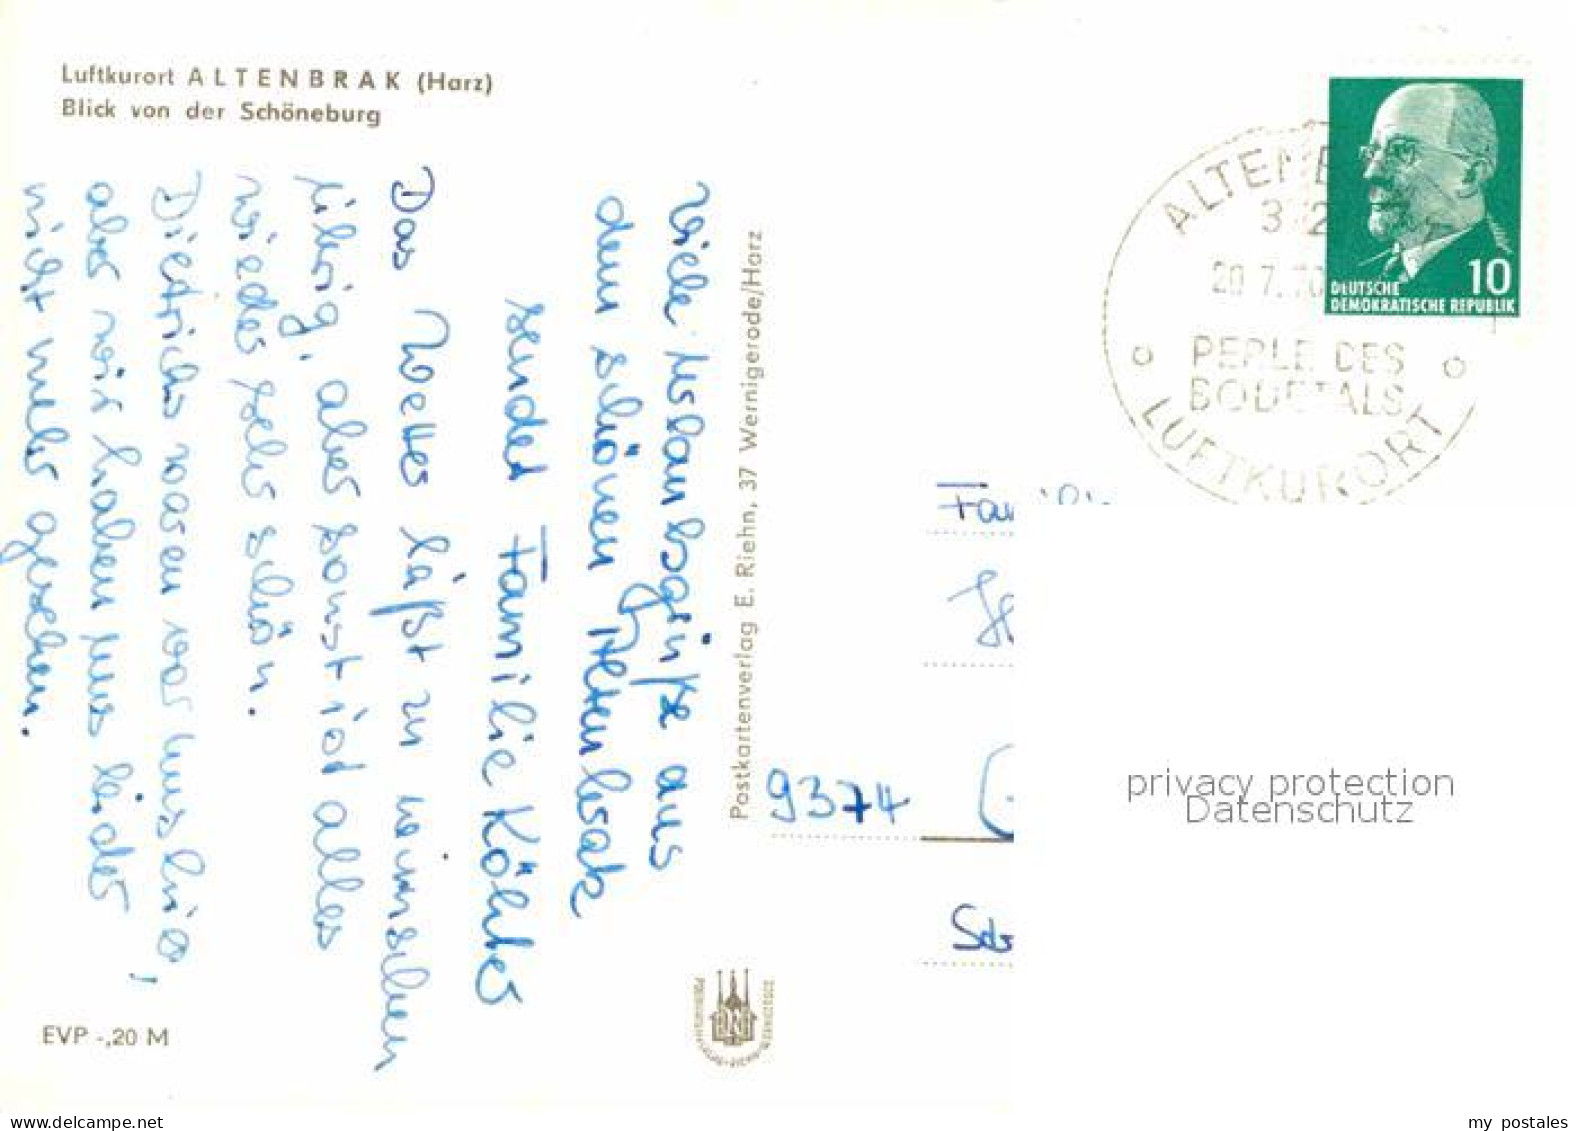 Luftkurort ALTENBRAK (Harz)
Blick von der Schöneburg
Viele Urlaubsgrüße aus
dem schönen Altenbrak
sendet Familie Köhler
Das Wetter läßt zu wünschen
übrig, aber sonst ist alles
wieder sehr schön.
Dietrichs waren vor uns hier,
aber wir haben uns leider
nicht mehr gesehen.
EVP -,20 M
Postkartenverlag E. Riehn, 37 Wernigerode/Harz
DEUTSCHE
DEMOKRATISCHE REPUBLIK
10
20.7.70
PERLE DES
BODETALS
LUFTKURORT
9374
privacy protection
Datenschutz
delcampe.net
my postales